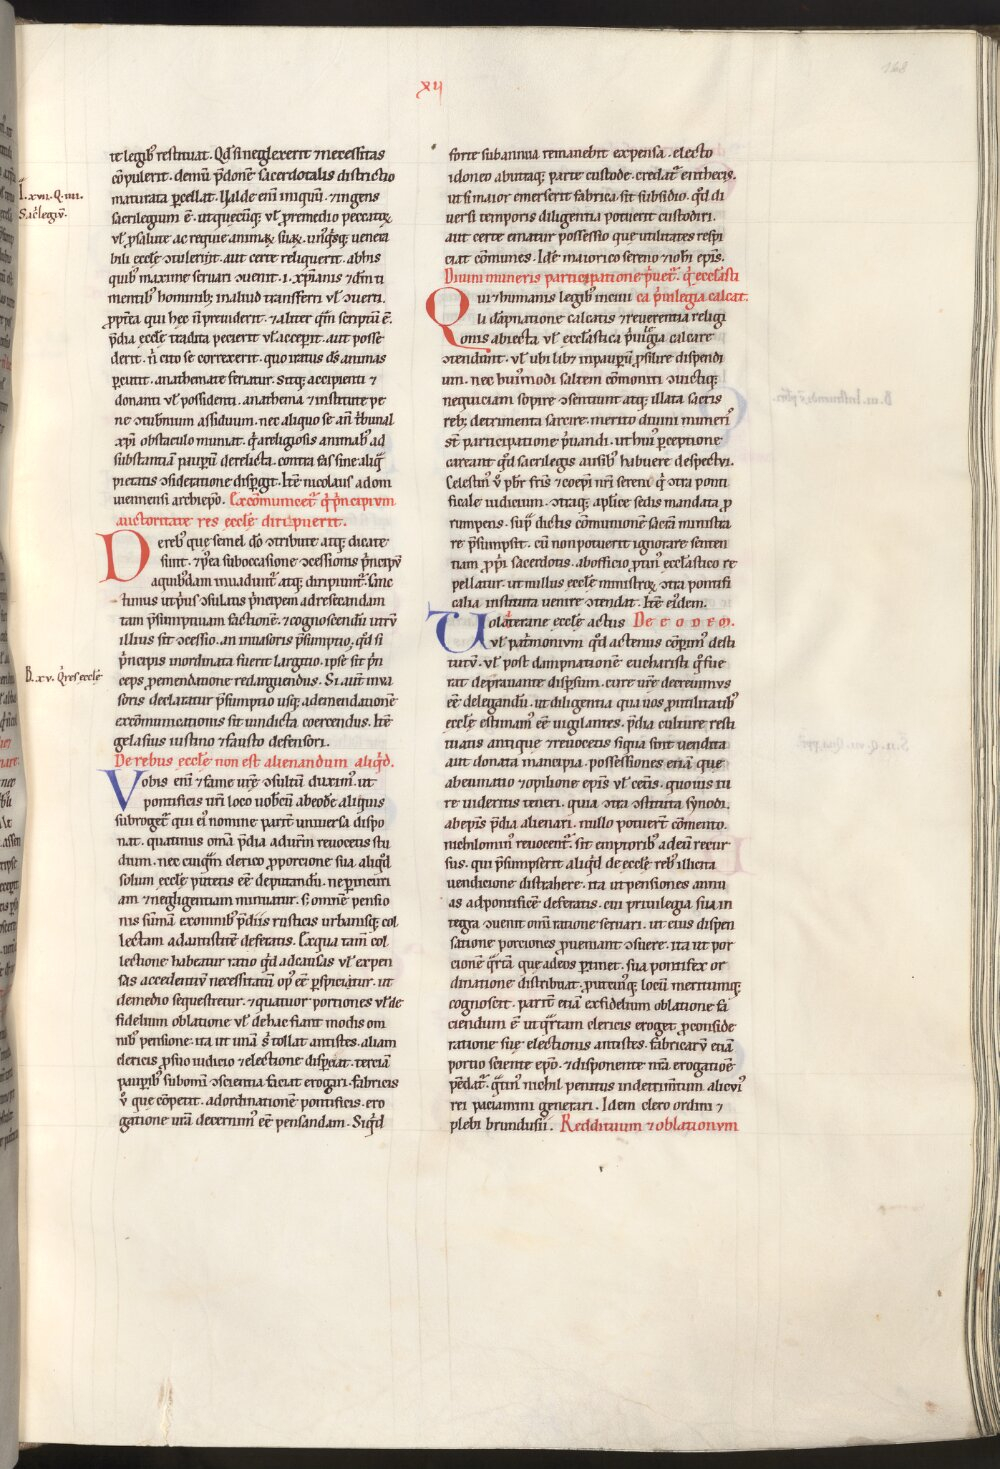 xii
168
te legib; restituat. Qd si neglexerit ⁊ necessitas
cōpulerit. demū p̄done sacerdotalis districtio
maturata ꝑcellat. Valde enī iniquū. ⁊ ingens
sacrilegium ē. ut quecūq; vl ꝓ remedio peccatoꝝ
vl ꝓ salute ac requie animaꝝ suaꝝ. unꝰqsq; venera
bili eccłe ↄtulerit. aut certe reliquerit. ab his
quib; maxime seruari ↄuenit. i. xp̄ianis ⁊ dm̄ ti
mentib; hominib; in aliud transferri vl ↄuerti.
ꝓpt̄ea qui hec ñ preuiderit. ⁊ aliter qm̄ scriptū ē.
p̄dia eccłe tradita pecierit vl acceperit. aut posse
derit. ñ cito se correxerit. quo iratus ds̄ animas
ꝑcutit. anathemate feriatur. sitq; accipienti ⁊
donanti vl possidenti. anathema ⁊ institute pe
ne ↄtub̄nium assiduum. nec aliquo se añ tbunal
xp̄i obstaculo muniat. q̇ a religiosis animab; ad
substantiā pauꝑū derelicta. contra fas sine aliq̄
pietatis ↄsideratione disꝑgit. Itē nicolaus adoni
uiennensi archiep̄o. Excōmunicet̄ q̇ p̄ncipium
auctoritate res eccłe diripuerit.
De reb; que semel dō ↄtribute atq; dicate
sunt. ⁊ p̄ea sub occasione ↄcessionis p̄ncipū
a quib;dam inuadunt̄. atq; diripiunt̄. sanc
timus ut pꝰus ↄsulatis p̄ncipem ad resecandam
tam p̄sumptiuam factionē. ⁊ cognoscendū utrū
illius sit ↄcessio. an inuasoris p̄sumptio. qd si
p̄ncipis inordinata fuerit largitio. ipse sit p̄n
ceps ꝓ emendatione redarguendus. Si aut̄ inua
soris declaratur p̄sumptio usq; ad emendationē
excōmunicationis sit uindicta coercendus. Itē
gelasius iustino ⁊ fausto defensori.
De rebus eccłe non est alienandum aliqd.
Vobis enī ⁊ fame ur̄e ↄsultū duximꝰ. ut
pontificis ur̄i loco uob̄cū ab eo de aliquis
subroget̄ qui eiꝰ nomine parit̄ uniuersa dispo
nat. quatinus om̄a p̄dia ad ur̄m reuocetis stu
dium. nec cuiqm̄ clerico ꝓ porcione sua aliqd
solum eccłe putetis eē deputandū. ne ꝑ incuri
am ⁊ negligentiam minuatur. s; omnē pensio
nis sūmā ex omnib; p̄diis rusticis urbanisq; col
lectam ad antistitē deferatis. Ex qua tam̄ col
lectione habeatur ratio qd ad causas vl expen
sas accedentiū necessitatū opꝰ eē ꝑspiciatur. ut
de medio sequestretur. ⁊ quatuor portiones vl de
fidelium oblatione vl de hac fiant modis om
nib; pensione. ita ut unā s̄ tollat antistes. aliam
clericis ꝓ suo iudicio ⁊ electione disꝑciat. terciā
pauꝑib; sub omī ↄscientia faciat erogari. fabricis
v̊ que cōpetit. ad ordinationē pontificis. ero
gatione ur̄a decernimꝰ eē pensandam. Si qd
forte sub annua remanebit expensa. electo
idoneo ab utraq; parte custode. credat̄ enthecis.
ut si maior emerserit fabrica sit subsidio. qd di
uersi temporis diligentia potuerit custodiri.
aut certe ematur possessio que utilitates respi
ciat cōmunes. Idē maiorico sereno ⁊ ioh̄i ep̄is.
Diuini muneris participatione p̄uet̄. q̇ ecclasti
Qui ⁊ humanis legib; meim ca p̄uilegia calcat.
li dāpnatione calcatis ⁊ reuerentia religi
onis abiecta vl ecclastica p̄uilegia calcare
ↄtendunt. vl ubi lib; in pauꝑū ꝓsilire dispendi
um. nec huiꝰmodi saltem cōmoniti ↄuictiq;
nequiciam sopire ↄsentiunt atq; illata sacris
reb; detrimenta sarcire. merito diuini munerꝰ
st̄ participatione p̄uandi. ut huiꝰ ꝑceptione
careant qd sacrilegis ausib; habuere despectui.
Celestinꝰ v̊ pbr fris̄ ⁊ coep̄i nr̄i sereni q̇ ↄtra ponti
ficale iudicium. ↄtraq; ap̄lice sedis mandata ꝓ
rumpens. sup̄ dictis cōmunionē sacrā ministra
re p̄sumpsit. cū non potuerit ignorare senten
tiam ꝓpri sacerdotis. ab officio ꝓtinꝰ ecclastico re
pellatur. ut nullus eccłe ministroꝝ ↄtra pontifi
calia instituta uenire ↄtendat. Itē eidem.
Volaterane eccłe actus De eodem.
vl pat̄monium qd actenus cōꝑimꝰ desti
tutū. vl post dampnationē eucharisti q̇ fue
rat deprauante disꝑsum. cure ur̄e decreuimus
eē delegandū. ut diligentia qua uos ꝓ utilitatib;
eccłe estimamꝰ eē uigilantes. p̄dia culture resti
tuatis antique ⁊ reuocetis si qua sint uendita
aut donata mancipia. possessiones etiam que
ab eunatio ⁊ opilione ep̄is vl cet̄is. quouis iu
re uideritis teneri. quia ↄtra ↄstituta synodi.
ab ep̄is p̄dia alienari. nullo potuerūt cōmento.
nichilominꝰ reuocent̄. sit emptorib; ad eū recur
sus. qui p̄sumpserit aliqd de eccłe reb; illicita
uendicione distrahere. ita ut pensiones annu
as ad pontificē deferatis. cui priuilegia sua in
tegra ↄuenit om̄i ratione seruari. ut eius dispen
satione porciones ꝓueniant ↄsuete. ita ut por
cionē q̄rtā que ad eos ꝑtinet. sua pontifex or
dinatione distribuat. ꝓut cuiq; locū meritumq;
cognoscit. parit̄ etiā ex fidelium oblatione fa
ciendum ē ut q̄rtam clericis eroget ꝓ conside
ratione sue electionis antistes. fabricarū etiā
portio sciente ep̄o. ⁊ disponente ur̄a erogatiōe
pēdat̄. q̄tinꝰ nichil penitus in detrimtum alicuiꝰ
rei paciamini generari. Idem clero ordini ⁊
plebi brundusii. Reddituum ⁊ oblationum
I. xvii. Q. iiii.
Sac̄legiū.
B. xv. Q̇ res eccłe